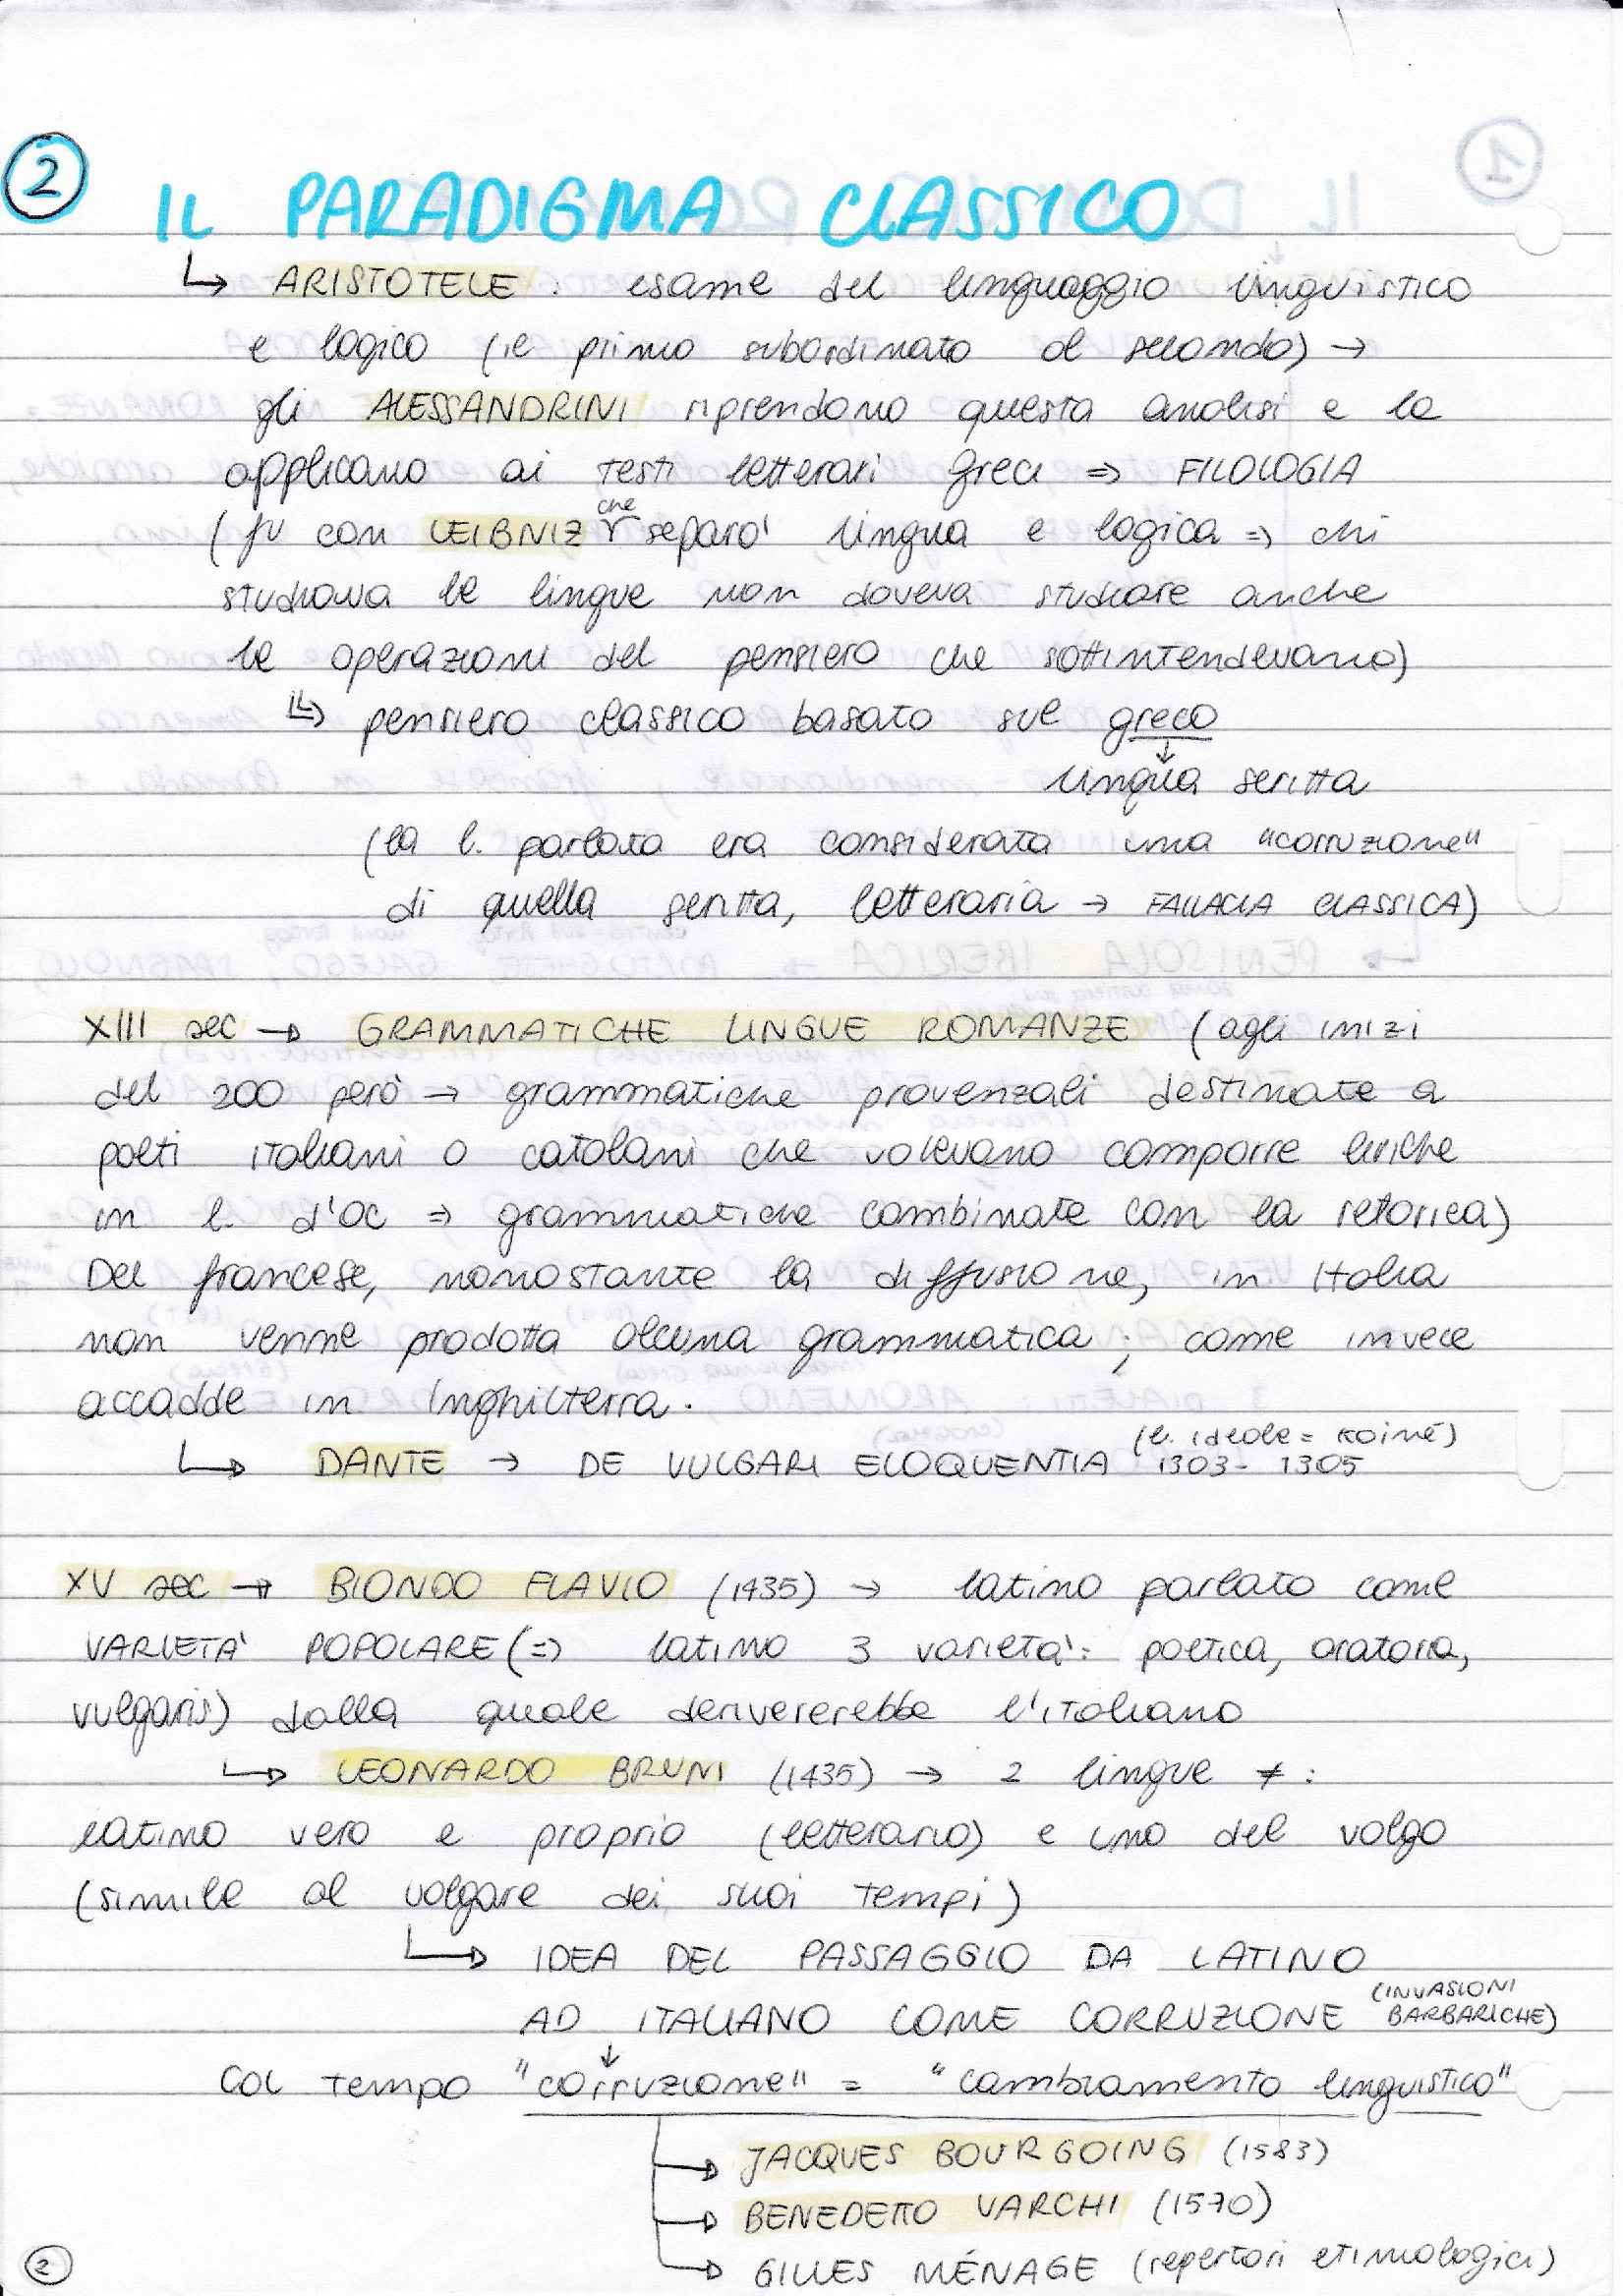 2
IL PARADIGMA CLASSICO
↳ ARISTOTELE : esame del linguaggio linguistico
e logico (il primo subordinato al secondo) →
gli ALESSANDRINI riprendono questa analisi e la
applicano ai testi letterari greci ⇒ FILOLOGIA
(fu con LEIBNIZ che separò lingua e logica ⇒ chi
studiava le lingue non doveva studiare anche
le operazioni del pensiero che sottintendevano)
↳ pensiero classico basato sul greco
↓
lingua scritta
(la l. parlata era considerata una "corruzione"
di quella scritta, letteraria → FALLACIA CLASSICA)
XIII sec → GRAMMATICHE LINGUE ROMANZE (agli inizi
del 200 però → grammatiche provenzali destinate a
poeti italiani o catalani che volevano comporre liriche
in l. d'oc ⇒ grammatiche combinate con la retorica)
Del francese, nonostante la diffusione, in Italia
non venne prodotta alcuna grammatica; come invece
accadde in Inghilterra.
↳ DANTE → DE VULGARI ELOQUENTIA (l. ideale = koiné) 1303-1305
XV sec → BIONDO FLAVIO (1435) → latino parlato come
VARIETA' POPOLARE (⇒ latino 3 varietà: poetica, oratoria,
vulgaris) dalla quale deriverererebbe l'italiano
↳ LEONARDO BRUNI (1435) → 2 lingue ≠ :
latino vero e proprio (letterario) e uno del volgo
(simile al volgare dei suoi tempi)
↳ IDEA DEL PASSAGGIO DA LATINO
AD ITALIANO COME CORRUZIONE (INVASIONI BARBARICHE)
↓
Col tempo "corruzione" = "cambiamento linguistico"
→ JACQUES BOURGOING (1583)
→ BENEDETTO VARCHI (1570)
→ GILLES MÉNAGE (repertori etimologici)
2